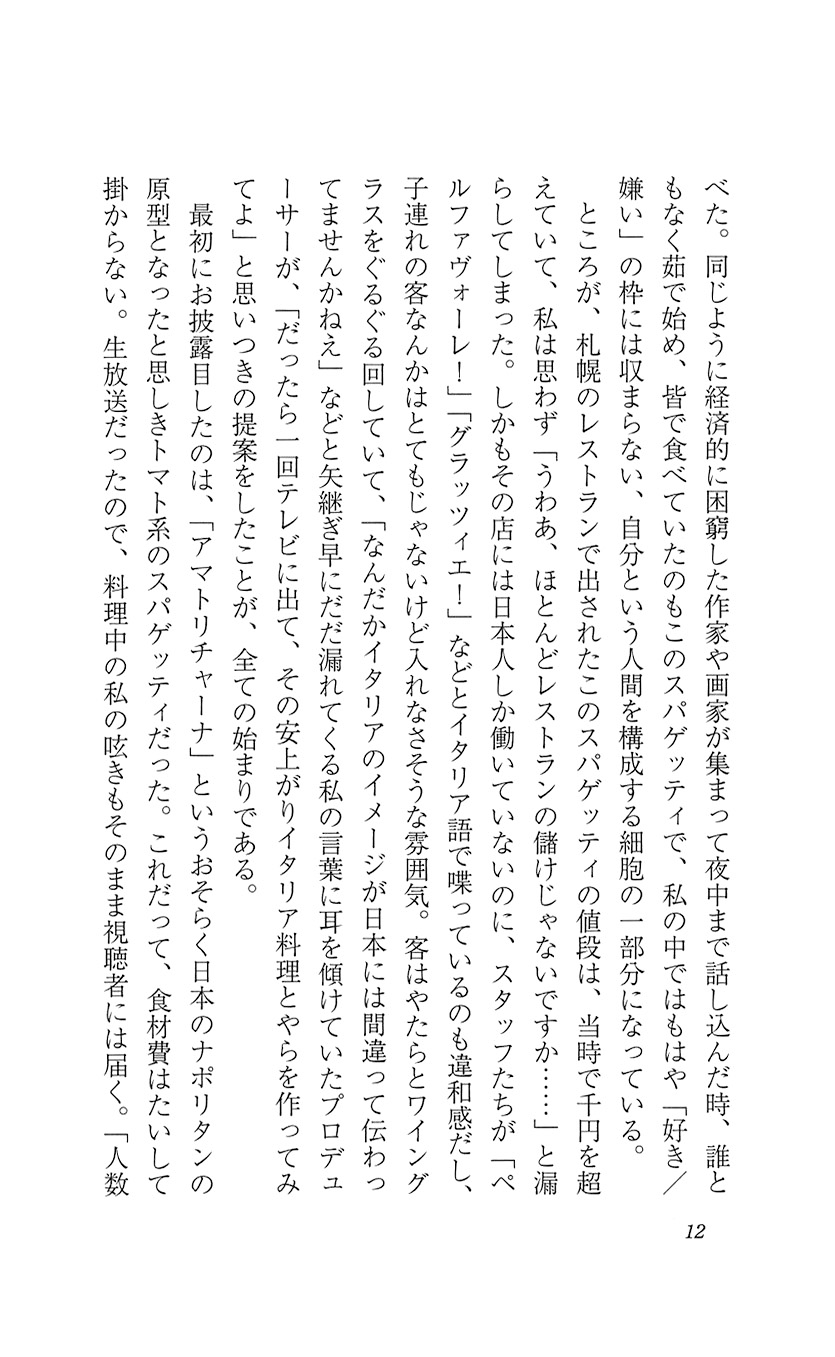 べた。同じように経済的に困窮した作家や画家が集まって夜中まで話し込んだ時、誰と
もなく茹で始め、皆で食べていたのもこのスパゲッティで、私の中ではもはや「好き／
嫌い」の枠には収まらない、自分という人間を構成する細胞の一部分になっている。
　ところが、札幌のレストランで出されたこのスパゲッティの値段は、当時で千円を超
えていて、私は思わず「うわあ、ほとんどレストランの儲けじゃないですか……」と漏
らしてしまった。しかもその店には日本人しか働いていないのに、スタッフたちが「ペ
ルファヴォーレ！」「グラッツィエ！」などとイタリア語で喋っているのも違和感だし、
子連れの客なんかはとてもじゃないけど入れなさそうな雰囲気。客はやたらとワイング
ラスをぐるぐる回していて、「なんだかイタリアのイメージが日本には間違って伝わっ
てませんかねえ」などと矢継ぎ早にだだ漏れてくる私の言葉に耳を傾けていたプロデュ
ーサーが、「だったら一回テレビに出て、その安上がりイタリア料理とやらを作ってみ
てよ」と思いつきの提案をしたことが、全ての始まりである。
　最初にお披露目したのは、「アマトリチャーナ」というおそらく日本のナポリタンの
原型となったと思しきトマト系のスパゲッティだった。これだって、食材費はたいして
掛からない。生放送だったので、料理中の私の呟きもそのまま視聴者には届く。「人数
12